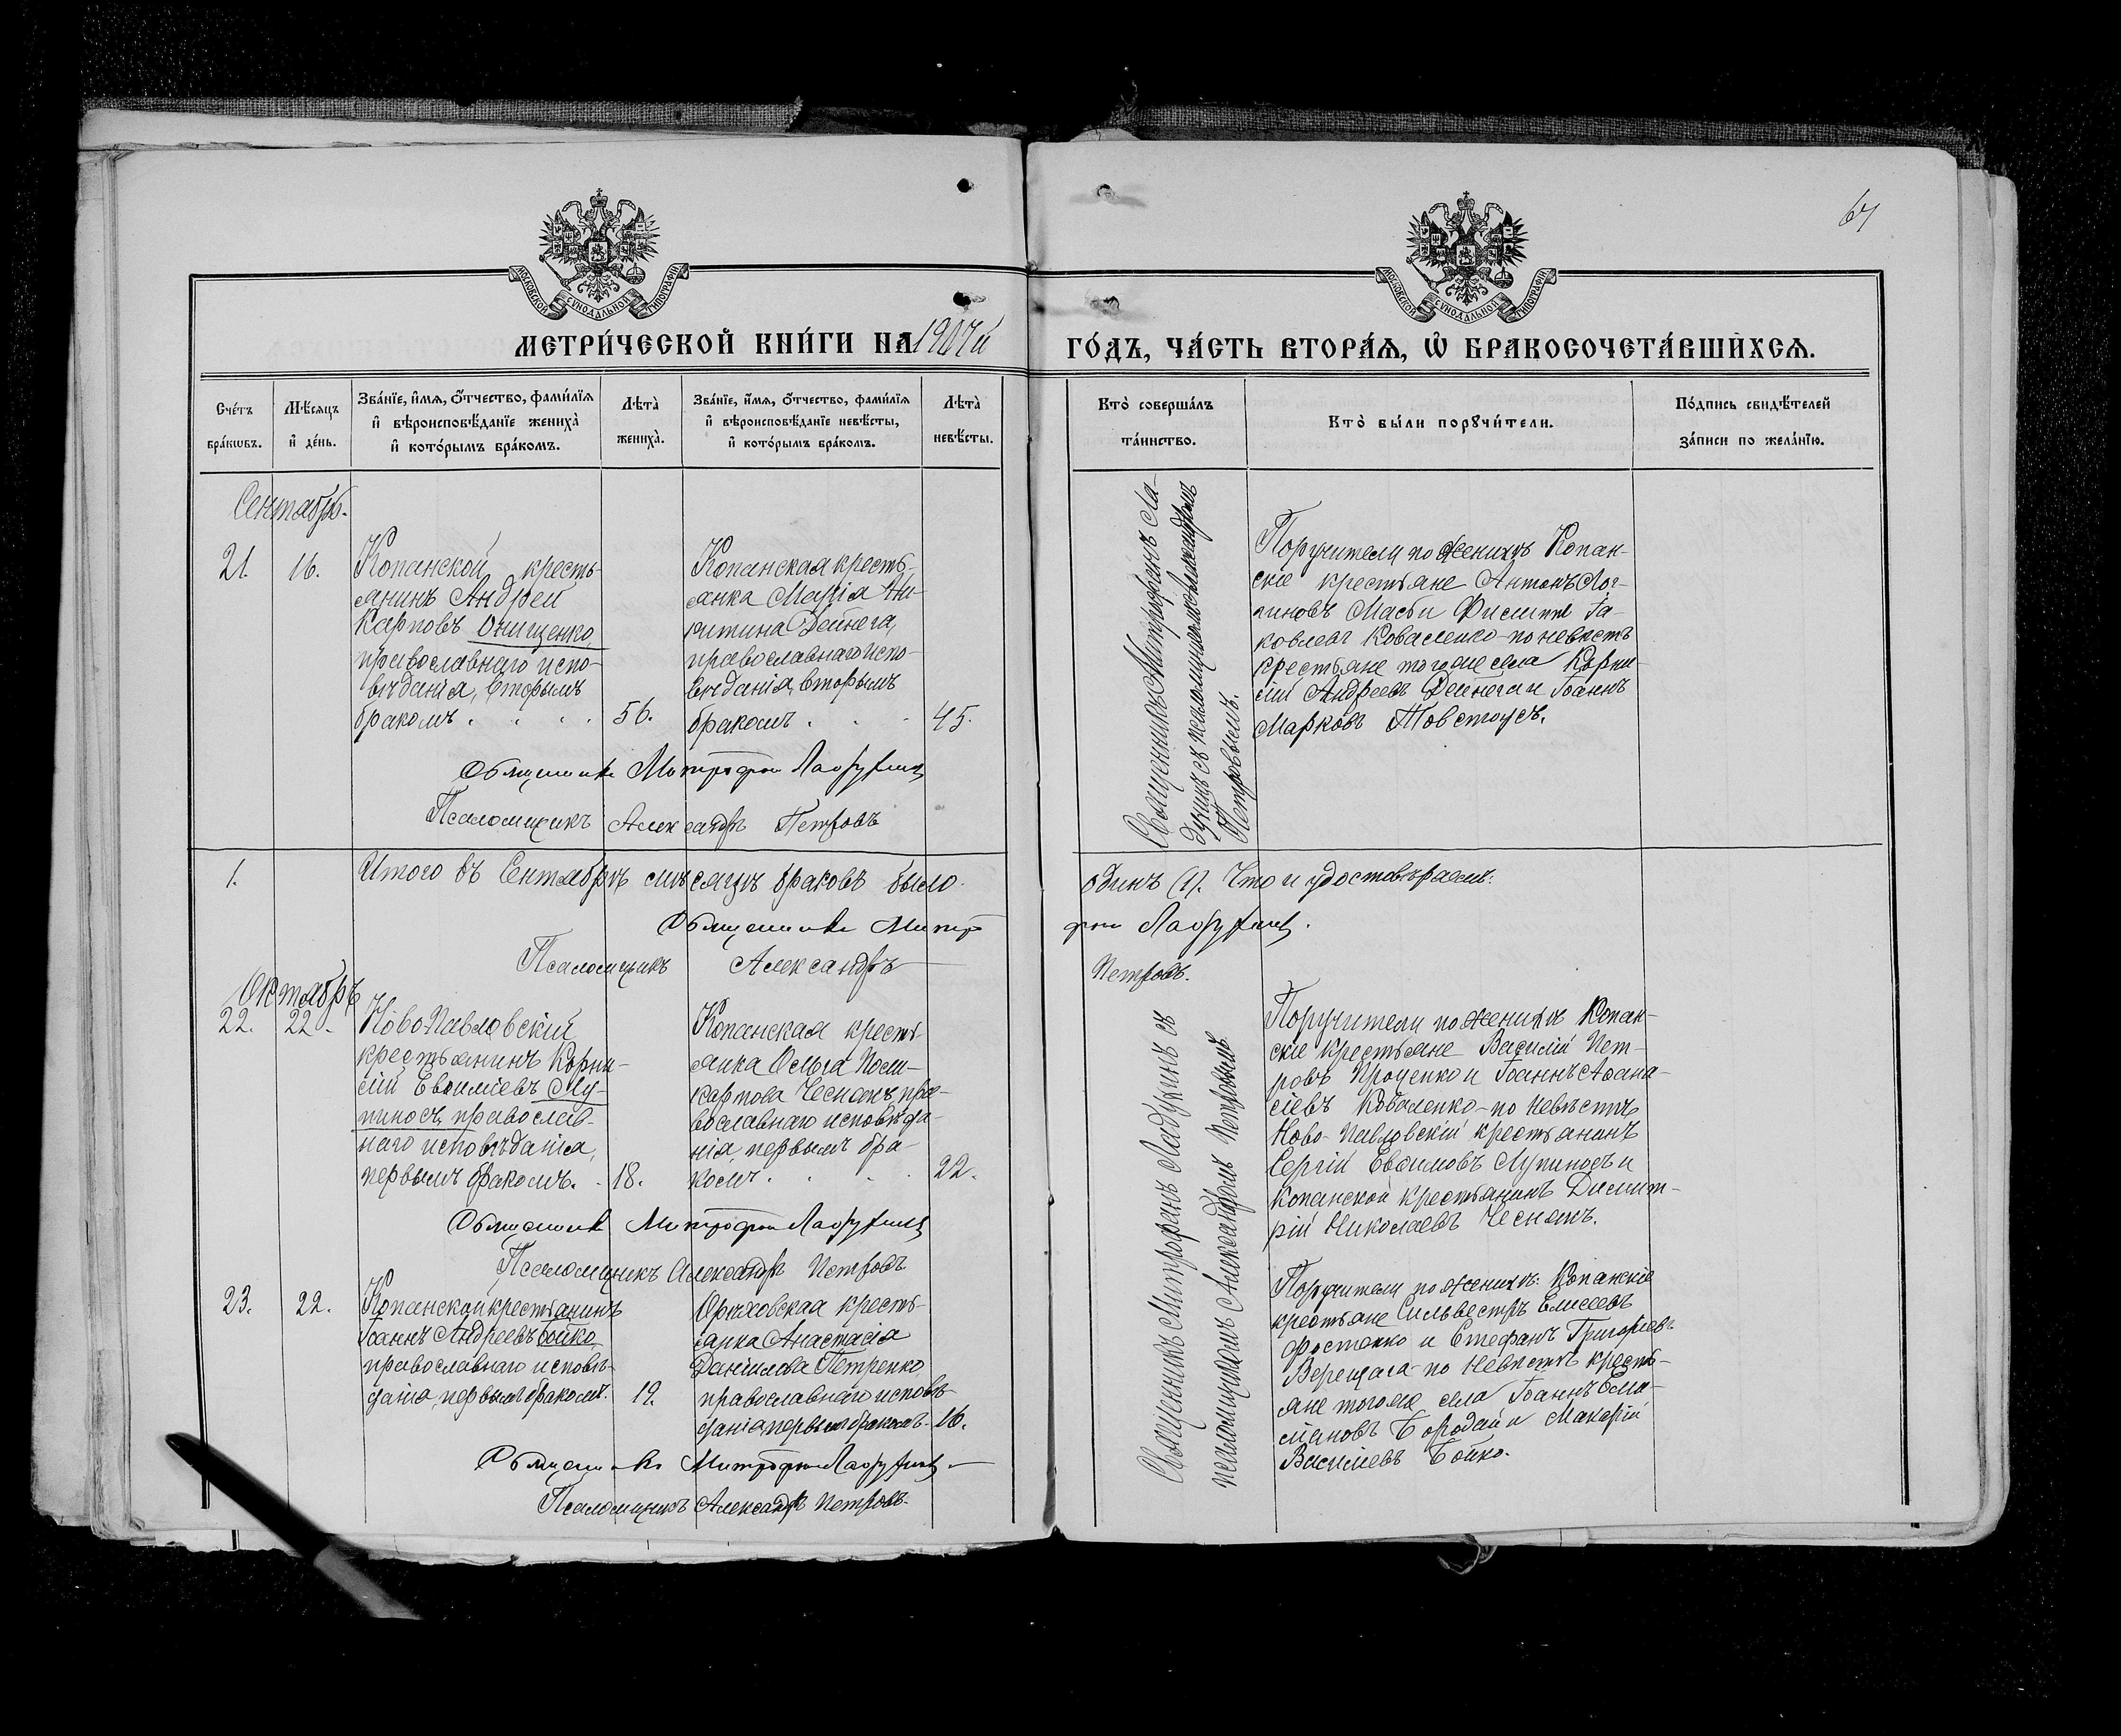 67
МОСКОВСКОЙ СУНОДАЛЬНОЙ ТИПОГРАФІИ
МОСКОВСКОЙ СУНОДАЛЬНОЙ ТИПОГРАФІИ
МЕТРИ́ЧЕСКОЙ КНИ́ГИ НА 1907й
ГО́ДЪ, ЧА́СТЬ ВТОРА́Я, Ѡ БРАКОСОЧЕТА́ВШИХСЯ.
Сче́тъ бра́кѡвъ.
Мѣ́сяцъ и де́нь.
Зва́нїе, и́мя, о́тчество, фами́лїя и вѣроисповѣ́данїе жениха̀ и кото́рымъ бра́комъ.
Лѣта̀ жениха̀.
Зва́нїе, и́мя, о́тчество, фами́лїя и вѣроисповѣ́данїе невѣ́сты, и кото́рымъ бра́комъ.
Лѣта̀ невѣ́сты.
Кто̀ соверша́лъ та́инство.
Кто̀ бы́ли порꙋчи́тели.
По́дпись свидѣ́телей за́писи по жела́нїю.
Сентябрь.
21.
16.
Копанской кресть-
янинъ Андрей
Карповъ Онищенко,
православнаго испо-
вѣданія, вторымъ
бракомъ . . . .
56.
Копанская кресть-
янка Марія Ни-
китина Дейнега,
православнаго испо-
вѣданія, вторымъ
бракомъ . . .
45.
Священникъ Митрофанъ Ла-
духинъ съ псаломщикомъ Александромъ
Петровымъ.
Поручители по женихѣ Копан-
скіе крестьяне Антонъ Лог-
гиновъ Масъ и Филиппъ Іа-
ковлевъ Коваленко - по невѣстѣ
крестьяне того же села Корни-
лій Андреевъ Дейнега и Іоаннъ
Марковъ Товстоусъ.
Священникъ Митрофанъ Ладухинъ
Псаломщикъ Александръ Петровъ
1.
Итого въ Сентябрѣ мѣсяцѣ браковъ было
одинъ (1). Что и удостовѣряемъ:
Священникъ Митро
фанъ Ладухинъ.
Псаломщикъ Александръ
Петровъ.
Октябрь
22.
22.
Ново-Павловскій
крестьянинъ Корни-
лій Евѳиміевъ Лу-
пиносъ, православ-
наго исповѣданія,
первымъ бракомъ. .
18.
Копанская кресть-
янка Ольга Поли-
карпова Чеснокъ, пра-
вославнаго исповѣда-
нія, первымъ бра-
комъ . . . .
22.
Священникъ Митрофанъ Ладухинъ съ
псаломщикомъ Александромъ Петровымъ.
Поручители по женихѣ Копан-
скіе крестьяне Василій Пет-
ровъ Проценко и Іоаннъ Аѳана-
сіевъ Коваленко - по невѣстѣ
Ново-Павловскій крестьянинъ
Сергій Евѳимовъ Лупиносъ и
Копанской крестьянинъ Димит-
рій Николаевъ Чеснокъ.
Священникъ Митрофанъ Ладухинъ
Псаломщикъ Александръ Петровъ
23.
22.
Копанской крестьянинъ
Іоаннъ Андреевъ Бойко,
православнаго исповѣ-
данія, первымъ бракомъ.
19.
Орѣховская кресть-
янка Анастасія
Даніилова Петренко,
православнаго исповѣ-
данія, первымъ бракомъ.
16.
Поручители по женихѣ: Копанскіе
крестьяне Сильвестръ Елисеевъ
и Стефанъ Григоріевъ
Верещага - по невѣстѣ кресть-
яне того же села Іоаннъ Еми-
ліановъ Бородай и Макарій
Василіевъ Бойко.
Священникъ Митрофанъ Ладухинъ
Псаломщикъ Александръ Петровъ.